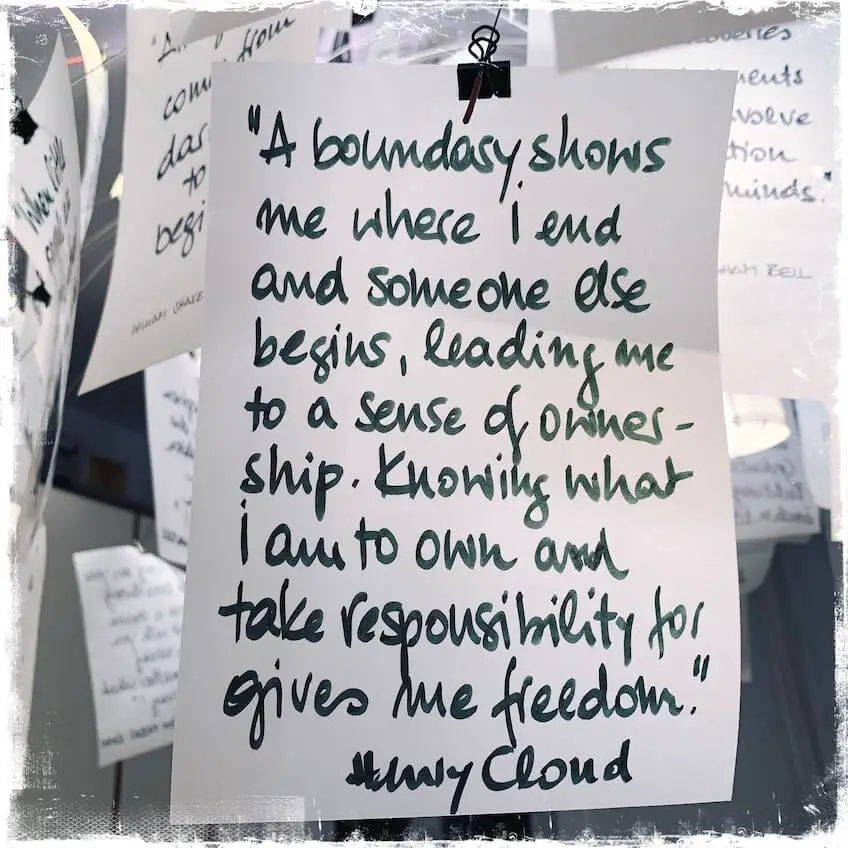 "A boundary shows
me where i end
and someone else
begins, leading me
to a sense of owner-
ship. Knowing what
i am to own and
take responsibility for
gives me freedom."
Henry Cloud
from
to
begi
William
"When
ments
volve
tion
minds.
HAM BELL